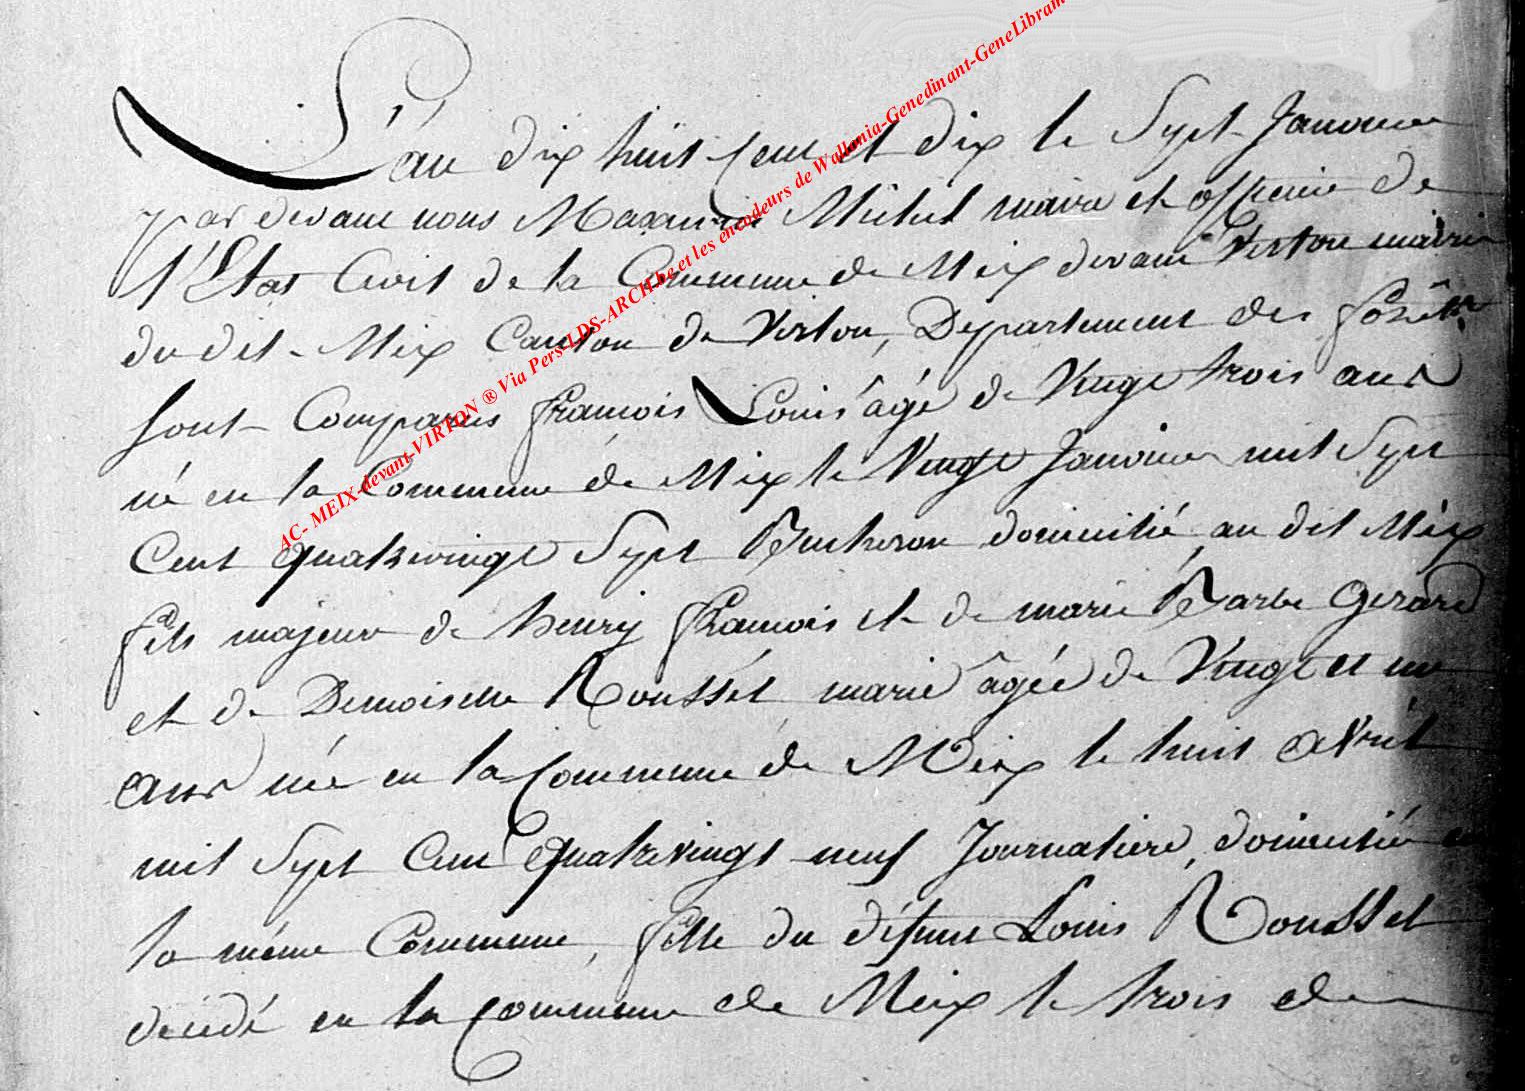 L'an dix huit cent et dix le Sept Janvier
par devant nous Maximin Michel maire et officier de
l'Etat Civil de la Commune de Meix devant Virton mairie
du dit Meix Canton de Virton, Departement des forêts
sont Comparus François Louis âgé de Vingt trois ans
né en la Commune de Meix le Vingt Janvier mil Sept
Cent quatrevingt Sept Bucheron domicilié au dit Meix
fils majeur de henry François et de marie Barbe Gerard
et de Demoiselle Roussel marie âgée de Vingt et un
ans née en la Commune de Meix le huit avril
mil Sept Cent quatrevingt neuf Journaliere, domiciliée en
la même Commune, fille du défunt Louis Roussel
décédé en la Commune de Meix le trois de
AC- MEIX-devant-VIRTON ® Via Pers-LDS-ARCH.be et les encodeurs de Wallonia-Genedinant-GeneLibram